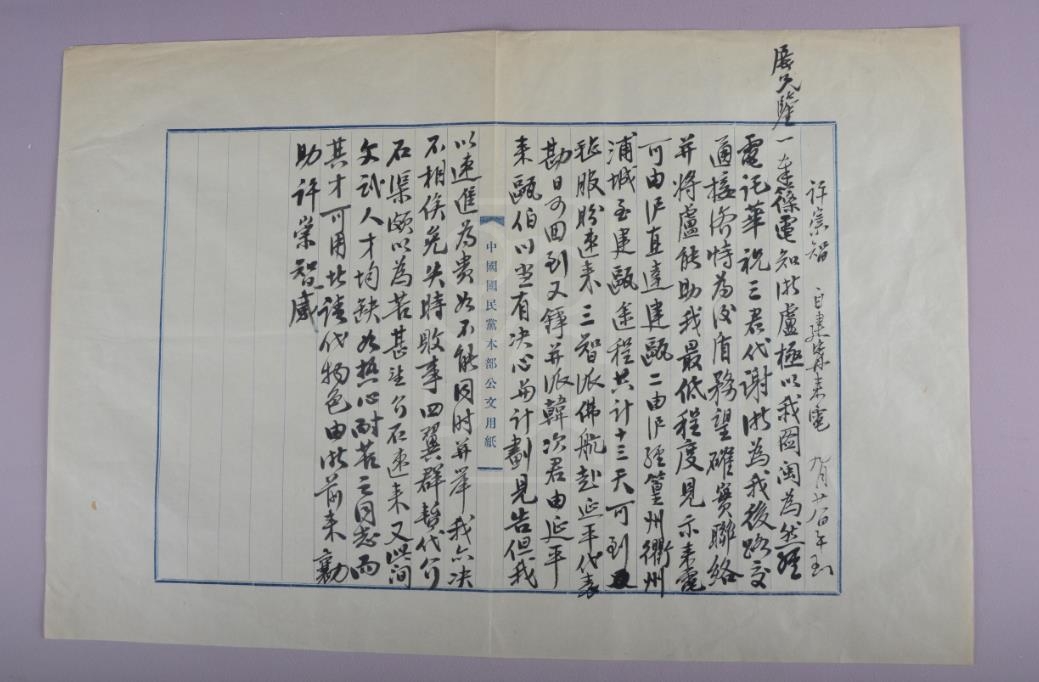 許崇智 自建甯來電 九月廿八日午到
展兄鑒一奉篠電知浙盧極以我圖閩為然經
電託華祝三君代謝浙為我後路交
通接濟特為後盾務望確實聯絡
并將盧能助我最低程度見示來電
可由滬直達建甌二由滬經 州衢州
浦城至建甌途程共計十三天可到
服盼速來三智派佛航赴延平代表
勘日可回到又鐸并派韓次君由延平
來甌伯川當有決心與計劃見告但我
以速進為貴如不能同時并舉我亦決
不相俟免失時敗事四翼群暫代介
石渠頗以為苦甚望介石速來又此間
文武人才均缺如熱心耐苦之同志而
其才可用者請代物色由浙前來襄
助許崇智感
中國國民黨本部公文用紙